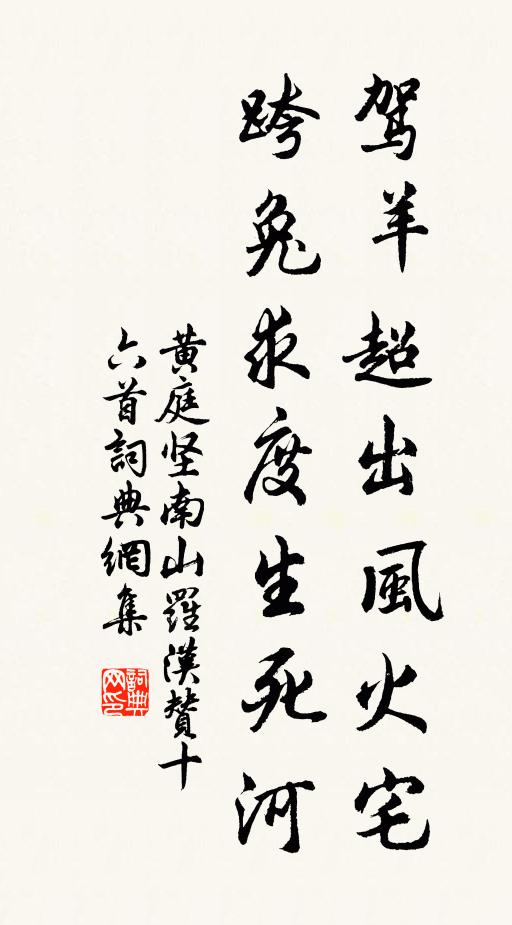 駕羊超出風火宅
跨兔求度生死河
黄庭坚南山羅漢贊十
六首詞典網集
詞典
网印